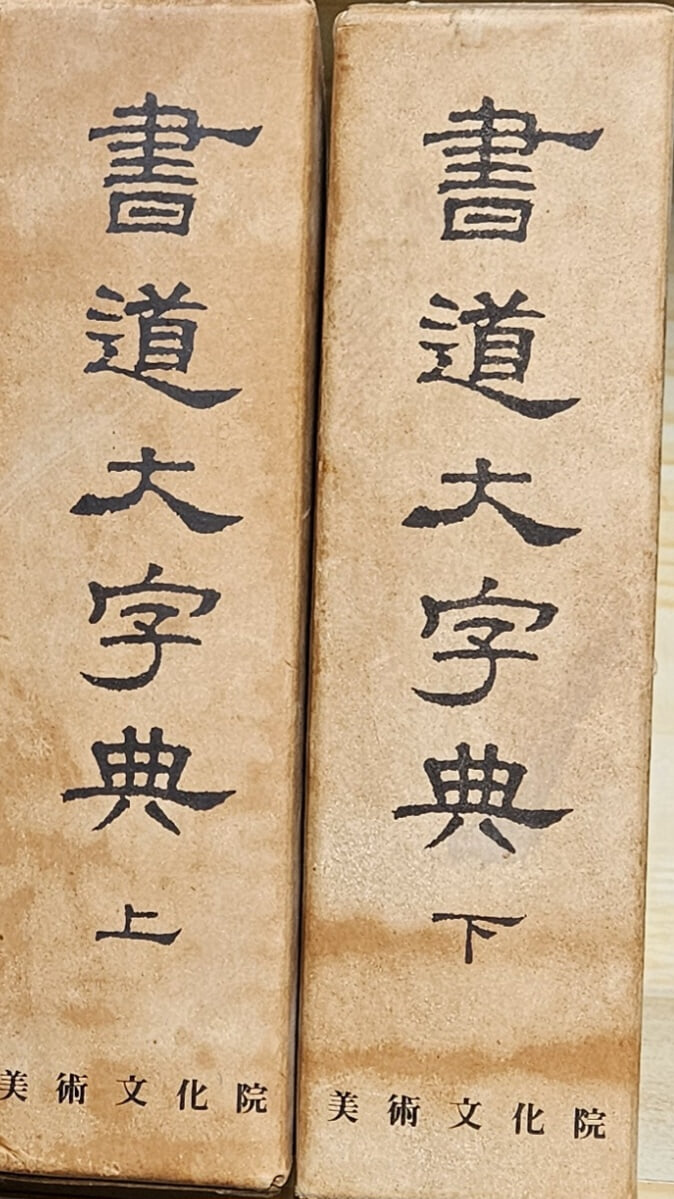 書道大字典
上
美術文化院
書道大字典
下
美術文化院